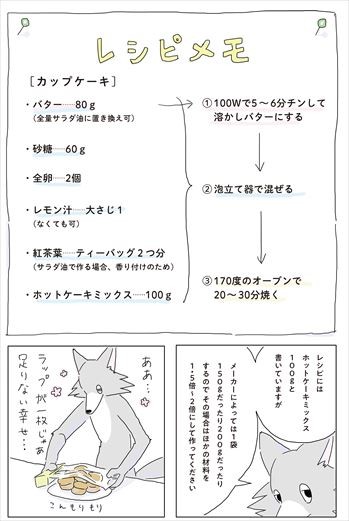 レシピメモ
［カップケーキ］
・バター……80g
（全量サラダ油に置き換え可）
・砂糖……60g
・全卵……2個
・レモン汁……大さじ1
（なくても可）
・紅茶葉……ティーバッグ2つ分
（サラダ油で作る場合、香り付けのため）
・ホットケーキミックス……100g
①100Wで5〜6分チンして
溶かしバターにする
②泡立て器で混ぜる
③170度のオーブンで
20〜30分焼く
レシピには
ホットケーキミックス
100gと
書いていますが
メーカーによっては1袋
150gだったり200gだったり
するので その場合はほかの材料を
1.5倍〜2倍にして作ってください
ああ…
ラップが一枚じゃあ
足りない幸せ…
こんもりもり